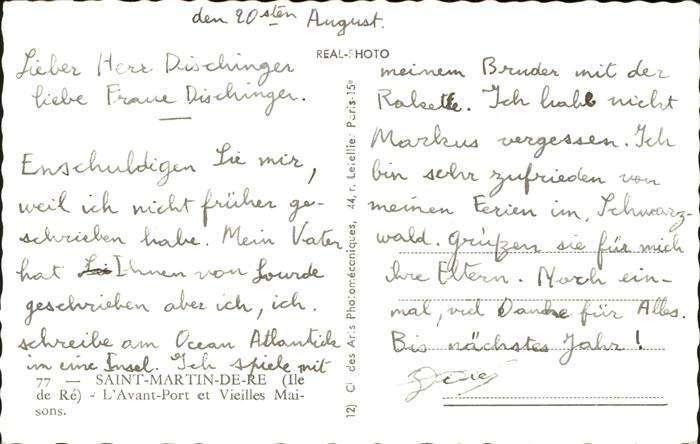 den 20sten August.
Lieber Herr Dischinger
liebe Fraue Dischinger.
Enschuldigen Sie mir,
weil ich nicht früher ge-
schrieben habe. Mein Vater
hat Ihnen von Lourde
geschrieben aber ich, ich
schreibe am Ocean Atlantick
in eine Insel. Ich spiele mit
77 — SAINT-MARTIN-DE-RE (Ile
de Ré) - L'Avant-Port et Vieilles Mai-
sons.
REAL-PHOTO
12) Cl des Arts Photomécaniques, 44, r. Letellier Paris-15e
meinem Bruder mit der
Rakette. Ich habe nicht
Markus vergessen. Ich
bin sehr zufrieden von
meinen Ferien im Schwarz-
wald. Grüßen sie für mich
ihre Eltern. Noch ein-
mal, viel Danke für Alles.
Bis nächstes Jahr!